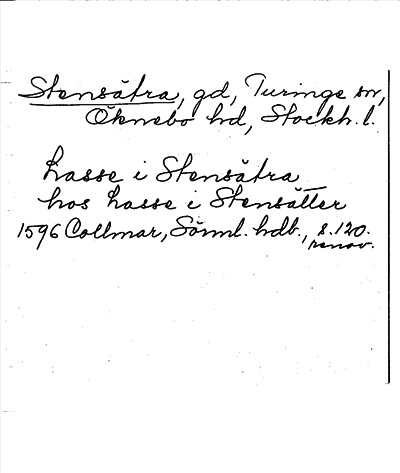 Stensätra, gd, Turinge sn,
Öknebo hd, Stockh. l.
Lasse i Stensätra
hos Lasse i Stensätter
1596 Collmar, Sörml. hdb., s. 120.
renov.